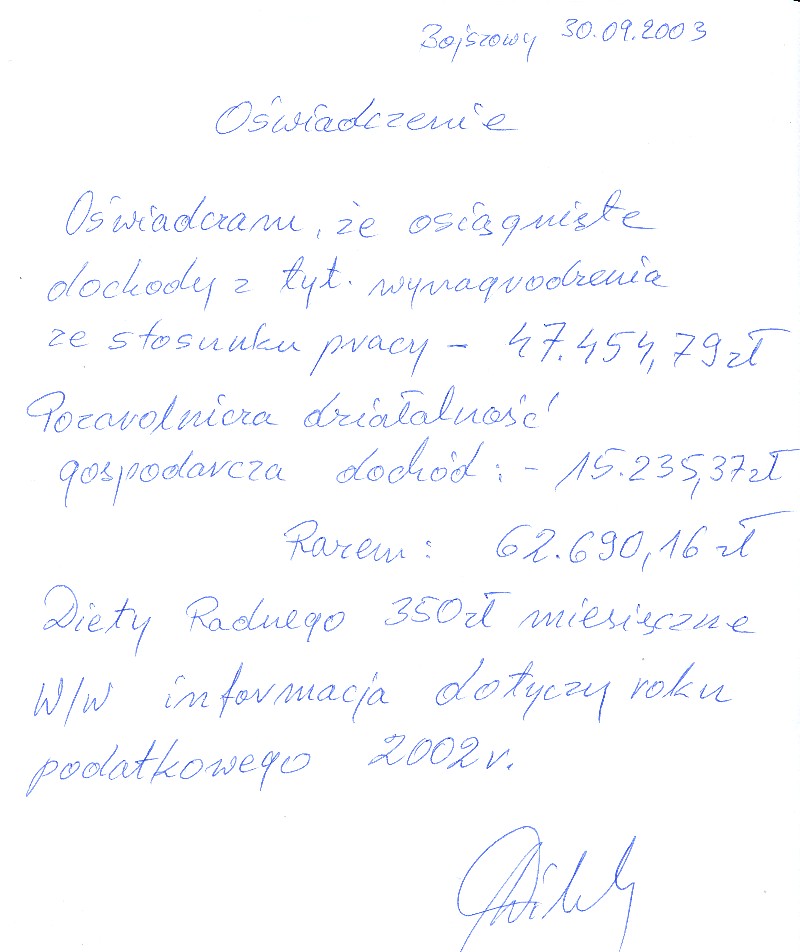 Bojszowy 30.09.2003
Oświadczenie
Oświadczam, że osiągnięte
dochody z tyt. wynagrodzenia
ze stosunku pracy - 47.454,79 zł
Pozarolnicza działalność
gospodarcza dochód: - 15.235,37 zł
Razem: 62.690,16 zł
Diety Radnego 350 zł miesięczne
W/w informacja dotyczy roku
podatkowego 2002 r.